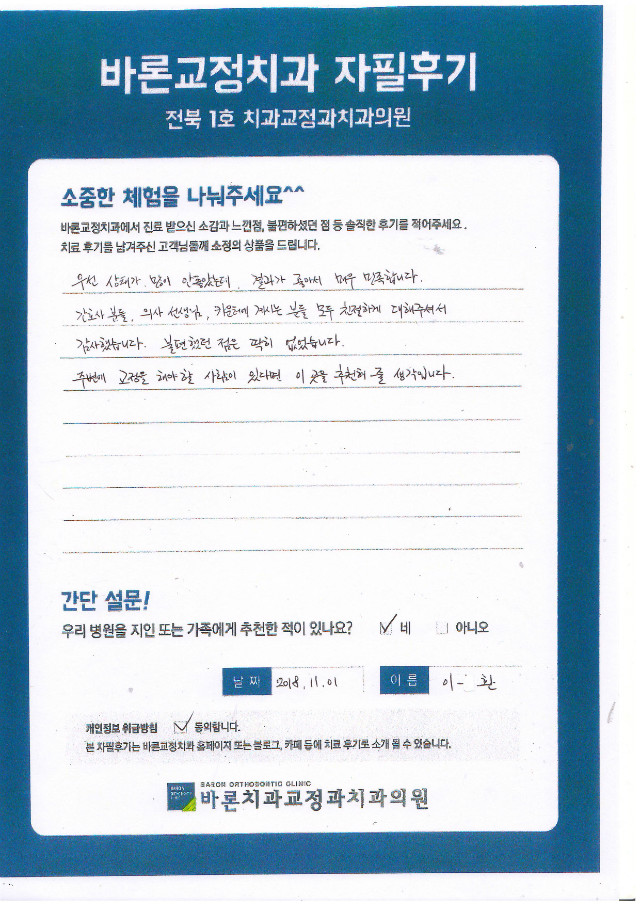 바론교정치과 자필후기
전북 1호 치과교정과치과의원
소중한 체험을 나눠주세요^^
바론교정치과에서 진료 받으신 소감과 느낀점, 불편하셨던 점 등 솔직한 후기를 적어주세요.
치료 후기를 남겨주신 고객님들께 소정의 상품을 드립니다.
우선 상태가 많이 안좋았는데, 결과가 좋아서 매우 만족합니다.
간호사 분들, 의사 선생님, 카운터에 계시는 분들 모두 친절하게 대해주셔서
감사했습니다. 불편했던 점은 딱히 없었습니다.
주변에 교정을 해야 할 사람이 있다면 이 곳을 추천해 줄 생각입니다.
간단 설문!
우리 병원을 지인 또는 가족에게 추천한 적이 있나요? 네 아니오
날 짜 2018.11.01 이 름 이- 환
개인정보 취급방침 동의합니다.
본 자필후기는 바론교정치과 홈페이지 또는 블로그, 카페 등에 치료 후기로 소개 될 수 있습니다.
BARON ORTHODONTIC CLINIC
바론치과교정과치과의원